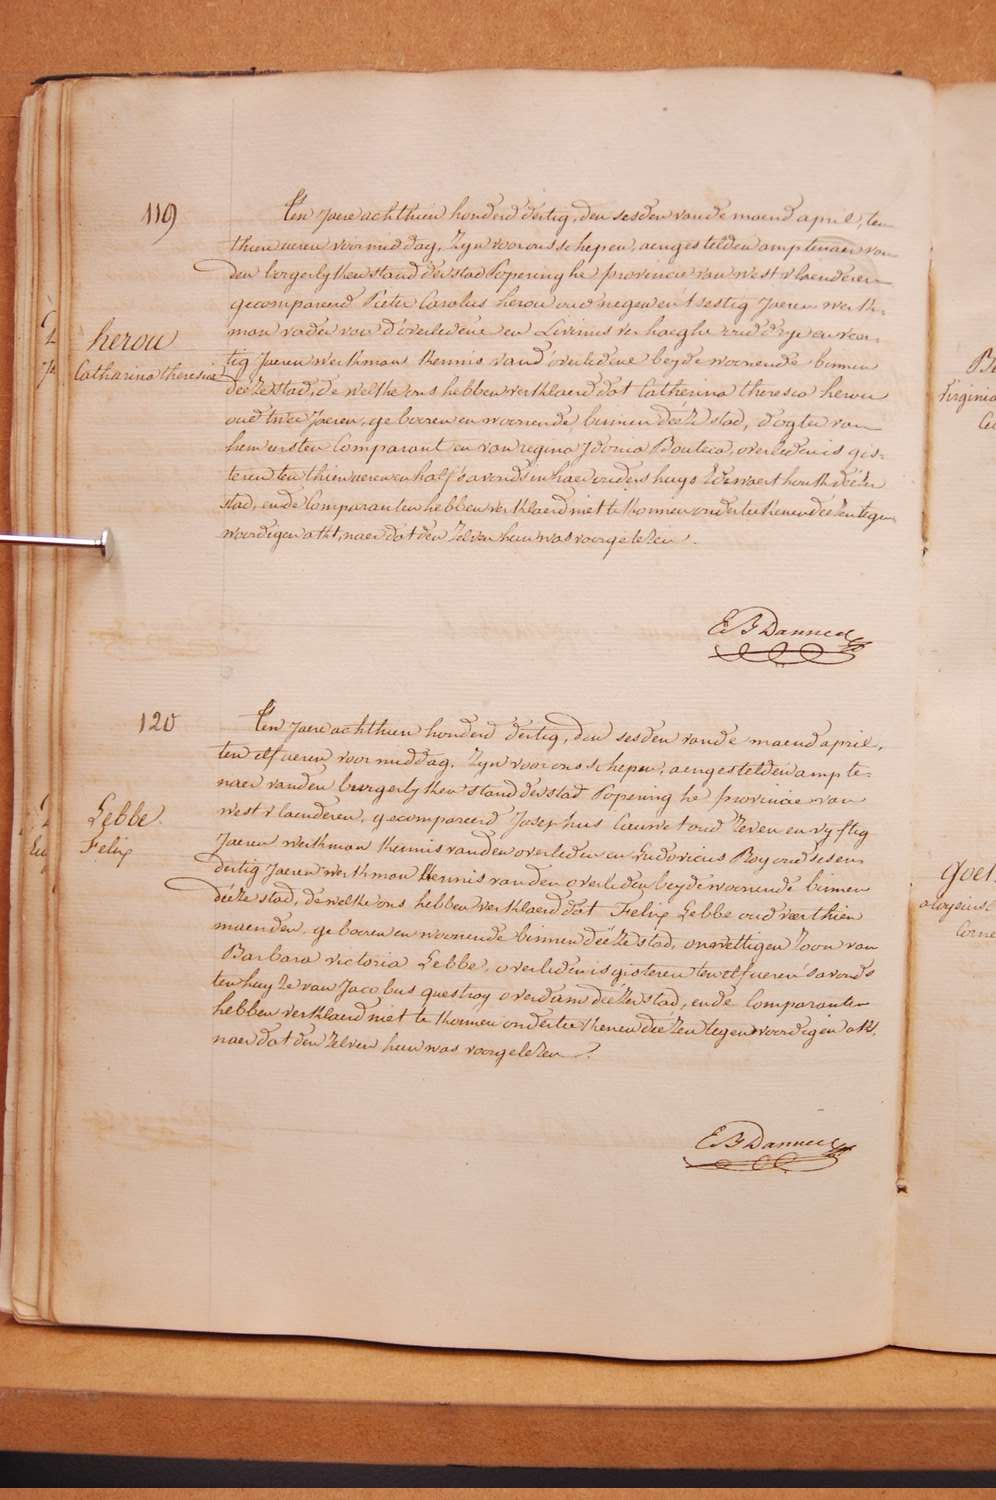 119
herou
Catharina theresia
Ten Jaere achthien honderd dertig, den sesden vande maend april, ten
thien ueren voormiddag, Zyn voor ons schepen, aengestelden amptenaer van
den borgerlyken stand der stad Poperinghe provincie van westvlaenderen
gecompareerd Pieter Carolus herou oud negen en t'sestig Jaeren werk-
man vader van d'overledene en Livinus verhaeghe oud dry en veer-
tig Jaeren werkman kennis vand'overledene beyde woonende binnen
deéze stad, de welke ons hebben verklaerd dat Catherina theresia herou
oud twee Jaeren, geboren en woonende binnen deéze stad, dogter van
hem eersten Comparant en van regina Idonia Bouteca, overleden is gis-
teren ten thien ueren en half s'avonds in haer ouders huys Edewaerthoek deézer
stad, en de Comparanten hebben verklaerd niet te konnen onderteekenen deézen tegen-
woordigen akt, naer dat den zelven hun was voorgelezen.
E B Danneel
120
Lebbe
Felix
Ten Jaere achthien honderd dertig, den sesden vande maend april,
ten elf ueren voormiddag, Zyn voor ons schepen, aengestelden ampte-
naer vanden burgerlyken stand der stad Poperinghe provincie van
westvlaenderen, gecompareerd Josephus Cauwet oud zeven en vyftig
Jaeren werkman kennis vanden overleden en Ludovicus Roy oud ses en
dertig Jaeren werkman Kennis van den overleden beyde woonende binnen
deéze stad, de welke ons hebben verklaerd dat Felix Lebbe oud veerthien
maenden, geboren en woonende binnen deéze stad, onwettigen zoon van
Barbara victoria Lebbe, overleden is gisteren ten elf ueren s'avonds
ten huyze van Jacobus questroy overdam deézer stad, en de Comparanten
hebben verklaerd niet te konnen onderteekenen deézen tegenwoordigen akt,
naer dat den zelven hun was voorgelezen.
E B Danneel
goet
Corne